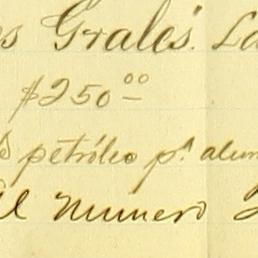 s Grales. La
$250 00
petróleo pª alum
El Numero